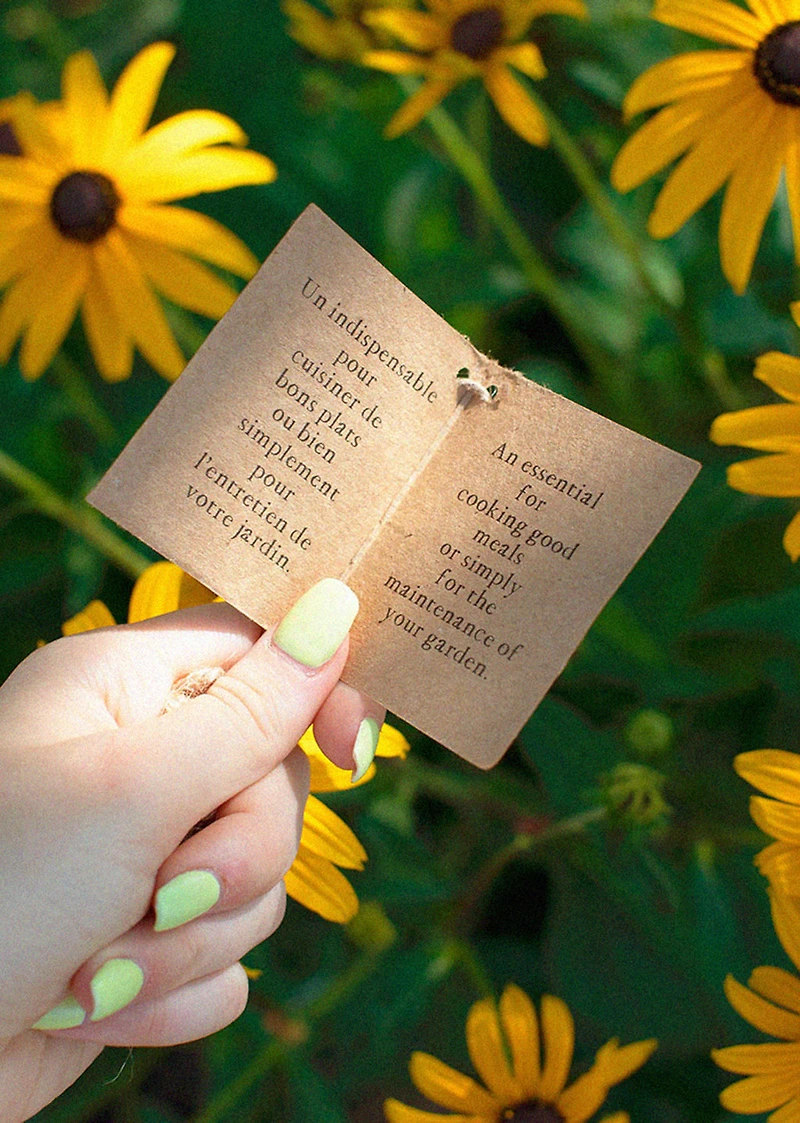 Un indispensable
pour
cuisiner de
bons plats
ou bien
simplement
pour
l'entretien de
votre jardin.
An essential
for
cooking good
meals
or simply
for the
maintenance of
your garden.